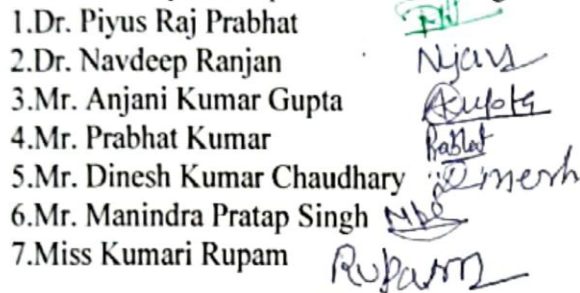 1.Dr. Piyus Raj Prabhat
2.Dr. Navdeep Ranjan
3.Mr. Anjani Kumar Gupta AGupta
4.Mr. Prabhat Kumar
5.Mr. Dinesh Kumar Chaudhary Dinesh
6.Mr. Manindra Pratap Singh
7.Miss Kumari Rupam Rupam